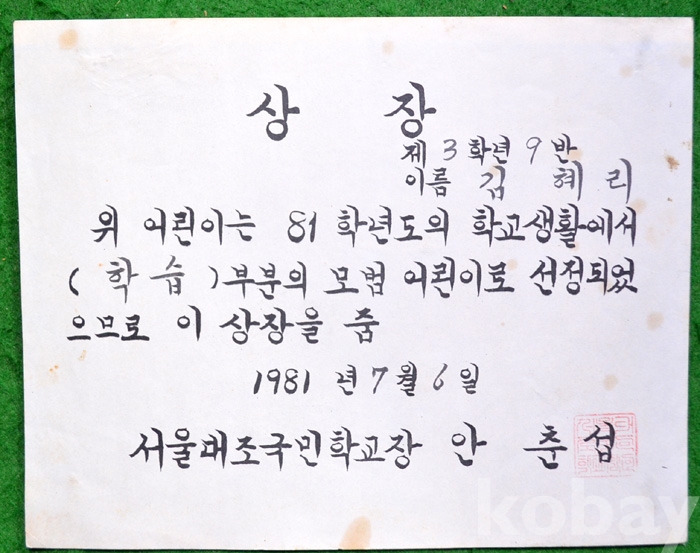 상 장
제 3 학년 9 반
이름 김 혜 리
위 어린이는 81 학년도의 학교생활에서
( 학 습 ) 부분의 모범 어린이로 선정되었
으므로 이 상장을 줌
1981 년 7 월 6 일
서울대조국민학교장 안 춘 섭
kobay